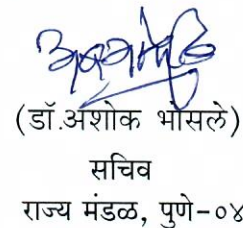 (डॉ.अशोक भोसले)
सचिव
राज्य मंडळ, पुणे-०४